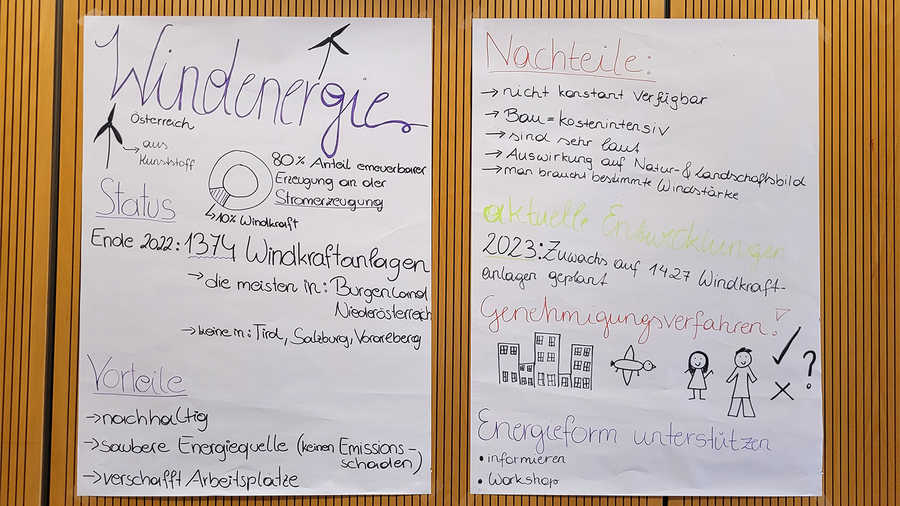 Windenergie
Österreich
→ aus
Kunststoff
80% Anteil erneuerbarer
Erzeugung an der
Stromerzeugung
→ 10% Windkraft
Status
Ende 2022: 1374 Windkraftanlagen
→ die meisten in: Burgenland
Niederösterreich
→ keine in: Tirol, Salzburg, Vorarlberg
Vorteile
→ nachhaltig
→ saubere Energiequelle (keinen Emissions-
schaden)
→ verschafft Arbeitsplätze
Nachteile:
→ nicht konstant verfügbar
→ Bau = kostenintensiv
→ sind sehr laut
→ Auswirkung auf Natur- & Landschaftsbild
→ man braucht bestimmte Windstärke
aktuelle Entwicklungen
2023: Zuwachs auf 1427 Windkraft-
anlagen geplant
Genehmigungsverfahren!
?
Energieform unterstützen
• informieren
• Workshop